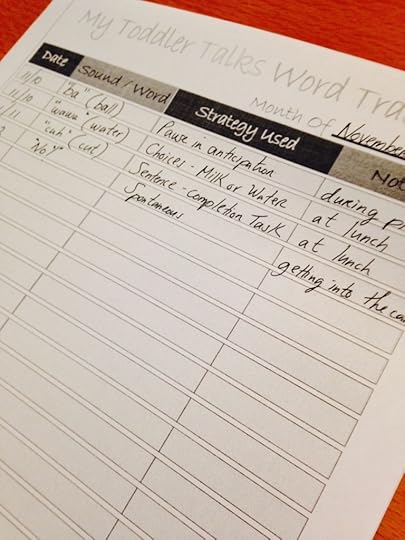 My Toddler Talks Word Tra
Month of November
Date Sound/Word Strategy Used Not
11/10 "ba" (ball) Pause in anticipation during p
11/10 "wawa" (water) Choices - Milk or Water at lunch
/11 "cuh" (cut) Sentence-completion Task at lunch
"No!" Spontaneous getting into the ca